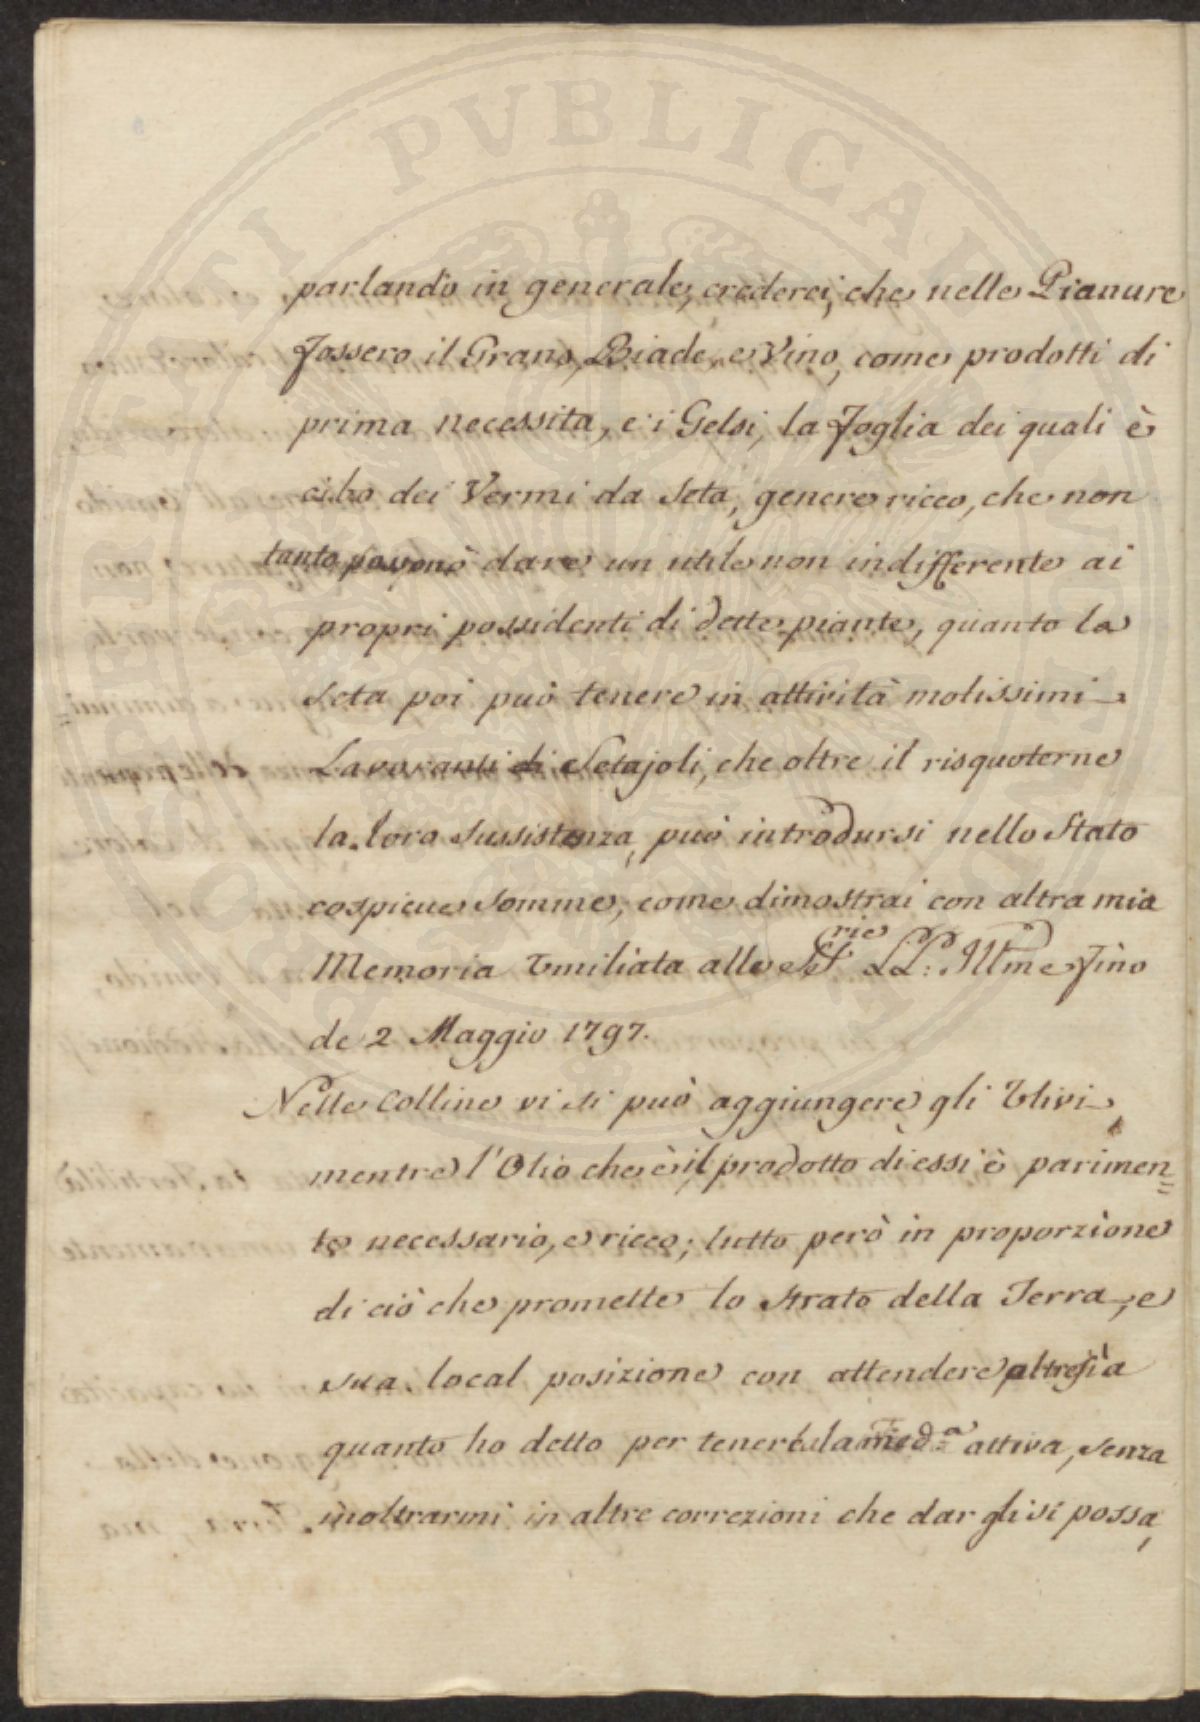 PROSPERITATI PVBLICAE AVGENDAE
parlando in generale, crederei, che nelle Pianure
fossero il Grano, Biade, e Vino, come prodotti di
prima necessita, e i Gelsi, la foglia dei quali è
cibo dei Vermi da Seta, genere ricco, che non
tanto possono dare un utile non indifferente ai
propri possidenti di dette piante, quanto la
Seta poi può tenere in attività molissimi
Lavoranti di Setajoli, che oltre il risquoterne
la loro Sussistenza, può introdursi nello Stato
cospicue Somme, come dimostrai con altra mia
Memoria Umiliata alle SS.rie LL: Illme fino
de 2 Maggio 1797.
Nelle Colline vi si può aggiungere gli Ulivi,
mentre l'Olio che è il prodotto di essi è parimen=
te necessario, e ricco; tutto però in proporzione
di ciò che promette lo Strato della Terra, e
sua local posizione con attendere altresì a
quanto ho detto per tenere la med.a attiva, senza
inoltrarmi in altre correzioni che dar gli si possa,